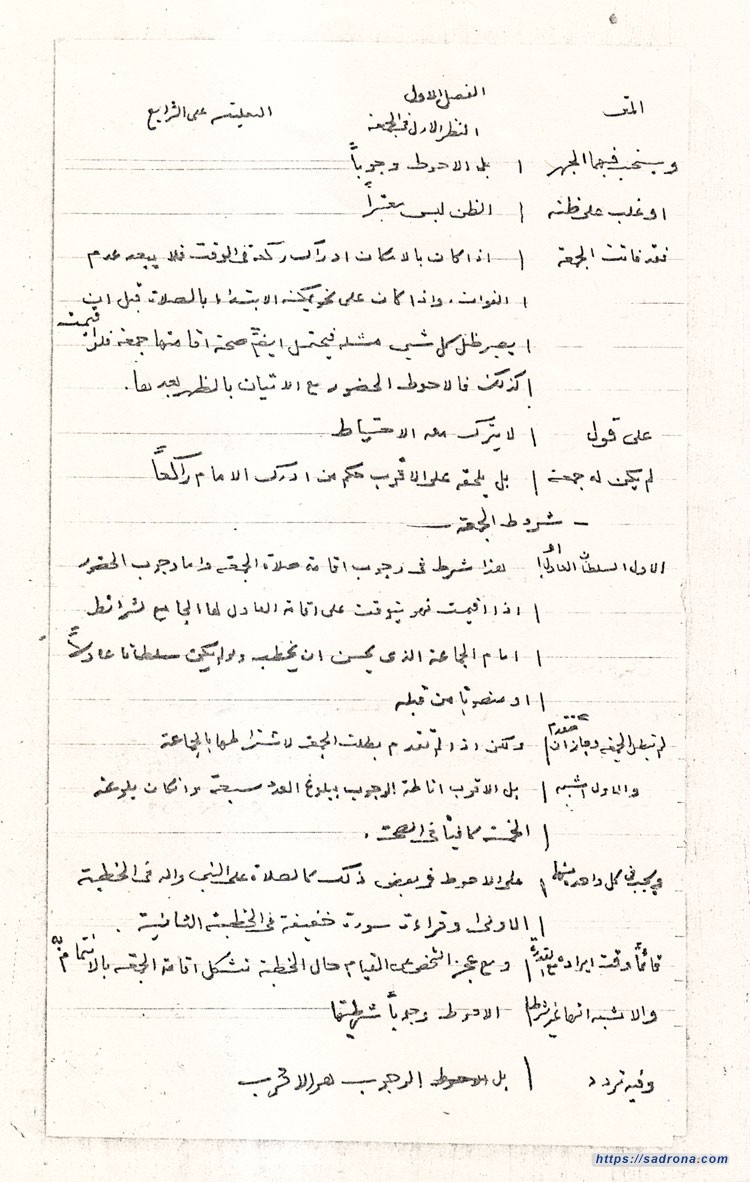 الفصل الاول
المتن النظر الاول في الجمعة التعليقة على الشرايع
ويستحب فيهما الجهر | بل الاحوط وجوباً
او غلب على ظنه | الظن ليس معتبراً
فقد فاتت الجمعة | اذا كان بالامكان ادراك ركعة في الوقت فلا يبعد عدم
| الفوات، واذا كان على نحو يمكنه الابتداء بالصلاة قبل ان
| يصير ظل كل شيء مثله فيحتمل ايضاً صحة اقامتها جمعة فلو اقيمت
| كذلك فالاحوط الحضور مع الاتيان بالظهر بعدها.
على قول | لا يترك معه الاحتياط
لم يكن له جمعة | بل يلحقه على الاقرب حكم من ادرك الامام راكعاً
- شروط الجمعة -
الاول السلطان العادل او | هذا شرط في وجوب اقامة صلاة الجمعة واما وجوب الحضور
| اذا اقيمت فهو يتوقف على اقامة العادل لها الجامع لشرائط
| امام الجماعة الذي يحسن ان يخطب ولو لم يكن سلطانا عادلاً
| او منصوبا من قبله
لم تبطل الجمعة وجاز ان تقدم | ولكن اذا لم تقدم بطلت الجمعة لاشتراطها بالجماعة
والاول اشبه | بل الاقرب اناطة الوجوب ببلوغ العدد سبعة وان كان بلوغه
| الخمسة كافياً في الصحة.
ويجب في كل واحدة منهما | على الاحوط في بعض ذلك كالصلاة على النبي واله في الخطبة
| الاولى وقراءة سورة خفيفة في الخطبة الثانية.
قائماً وقت ايراده مع القدرة | ومع عجز الشخص عن القيام حال الخطبة تشكل اقامة الجمعة بالائتمام به
والاشبه انها غير شرط | الاحوط وجوباً شرطيتها
وفيه تردد | بل الوجوب هو الاقرب
https://sadrona.com